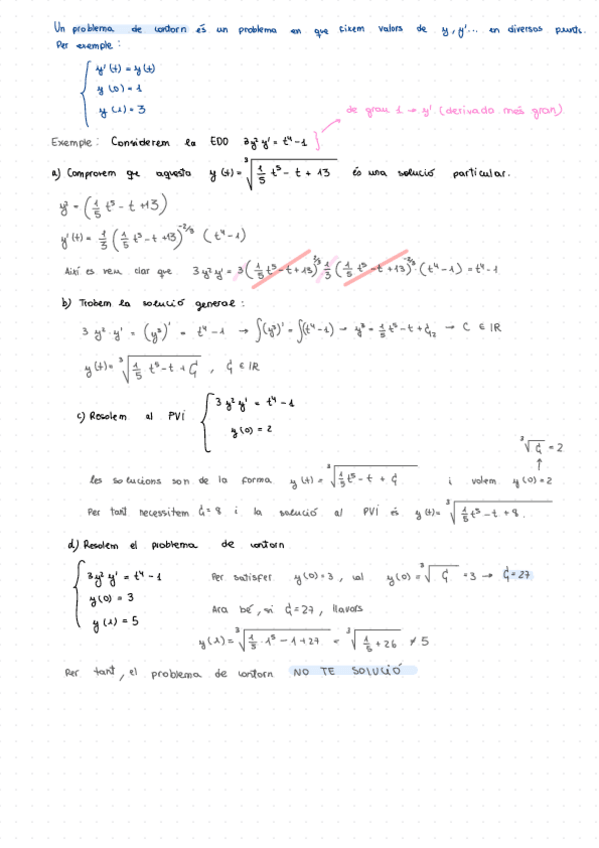 Un problema de contorn és un problema en que fixem valors de y, y'... en diversos punts.
Per exemple:
y'(t) = y(t)
y(0) = 1
y(1) = 3
de grau 1 → y' (derivada més gran)
Exemple: Considerem la EDO 3y² y' = t⁴ - 1
a) Comprovem que aquesta y(t) = ∛(1/5 t⁵ - t + 13) és una solució particular.
y³ = (1/5 t⁵ - t + 13)
y'(t) = 1/3 (1/5 t⁵ - t + 13)^(-2/3) (t⁴ - 1)
Així es veu clar que 3y² y' = 3 (1/5 t⁵ - t + 13)^(2/3) 1/3 (1/5 t⁵ - t + 13)^(-2/3) · (t⁴ - 1) = t⁴ - 1
b) Trobem la solució general:
3 y² · y' = (y³)' = t⁴ - 1 → ∫(y³)' = ∫(t⁴ - 1) → y³ = 1/5 t⁵ - t + C → C ∈ ℝ
y(t) = ∛(1/5 t⁵ - t + C), C ∈ ℝ
c) Resolem al PVI
3y² y' = t⁴ - 1
y(0) = 2
∛C = 2
↑
les solucions son de la forma y(t) = ∛(1/5 t⁵ - t + C) i volem y(0) = 2
Per tant necessitem C = 8 i la solució al PVI és y(t) = ∛(1/5 t⁵ - t + 8).
d) Resolem el problema de contorn
3y² y' = t⁴ - 1
y(0) = 3
y(1) = 5
Per satisfer y(0) = 3, cal y(0) = ∛C = 3 → C = 27
Ara bé, si C = 27, llavors
y(1) = ∛(1/5 · 1⁵ - 1 + 27) = ∛(1/5 + 26) ≠ 5
Per tant, el problema de contorn NO TE SOLUCIÓ